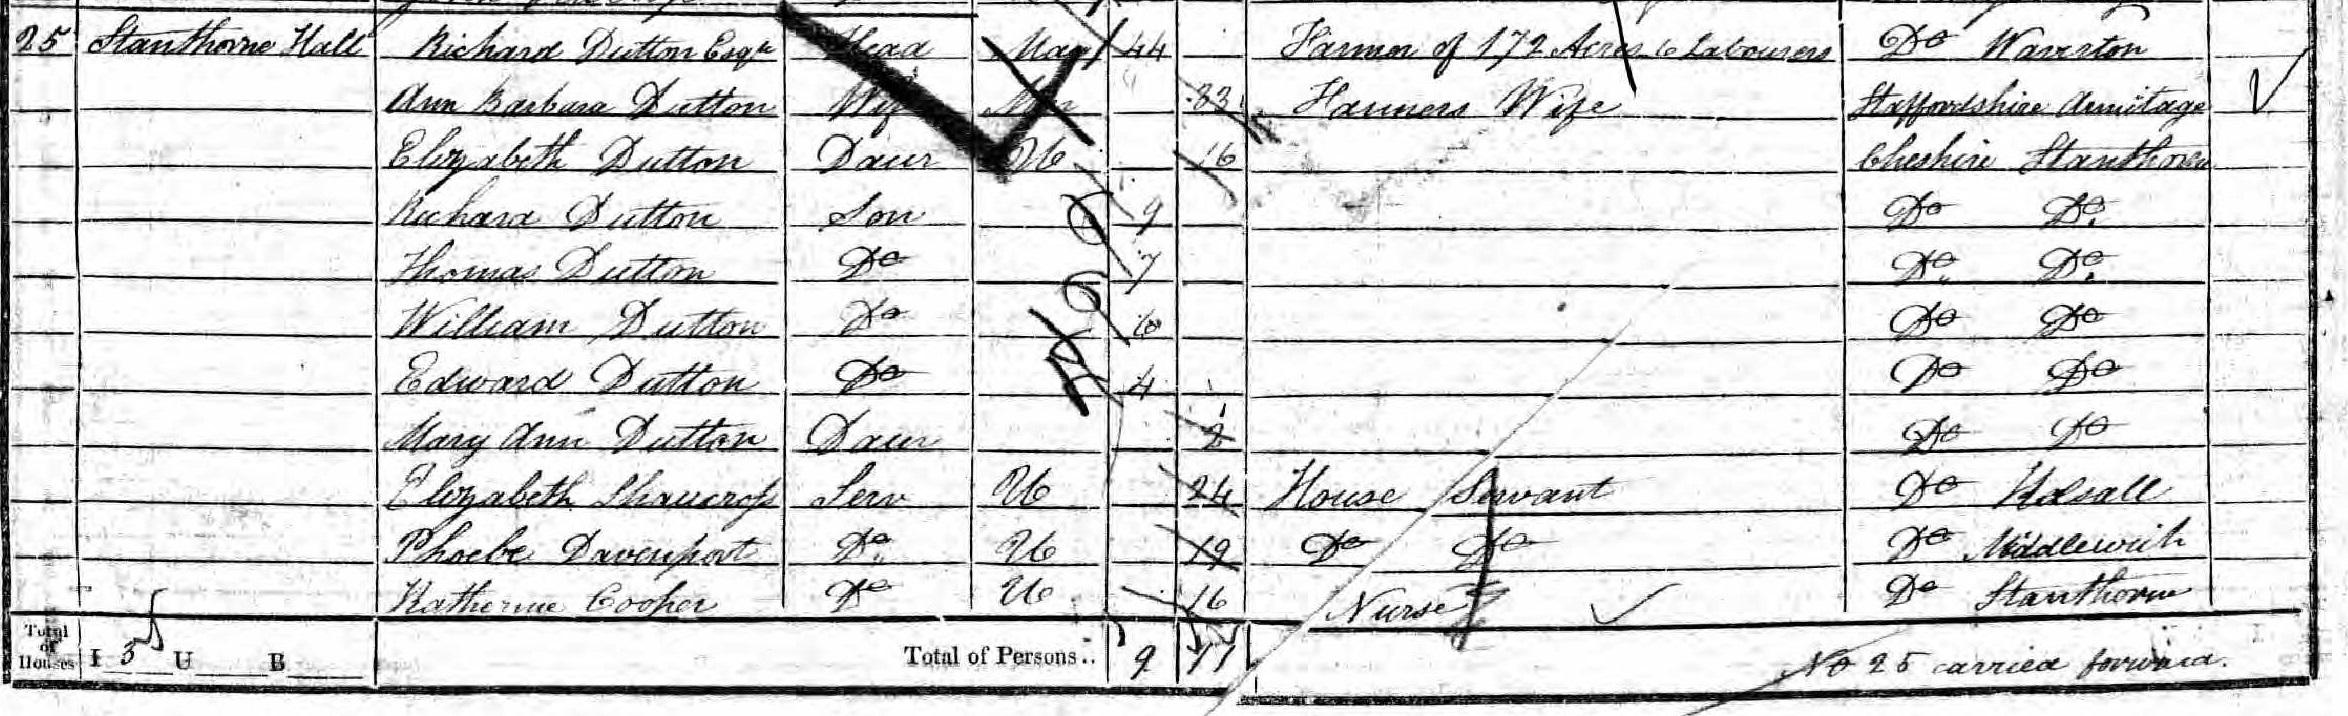 25 Stanthorne Hall Richard Dutton Esqr Head Mar 44 Farmer of 172 Acres 6 Labourers Do Waverton
Ann Barbara Dutton Wife Mar 33 Farmers Wife Staffordshire Armitage
Elizabeth Dutton Daur U 16 Cheshire Stanthorne
Richard Dutton Son 9 Do Do
Thomas Dutton Do 7 Do Do
William Dutton Do 6 Do Do
Edward Dutton Do 4 Do Do
Mary Ann Dutton Daur 2 Do Do
Elizabeth Shawcross Serv U 24 House Servant Do
Phoebe Davenport Do U 19 Do Do Do Middlewich
Katherine Cooper Do U 16 Nurse Do Stanthorne
Total of Houses I 3 U B Total of Persons.. 9 11
No 25 carried forward.